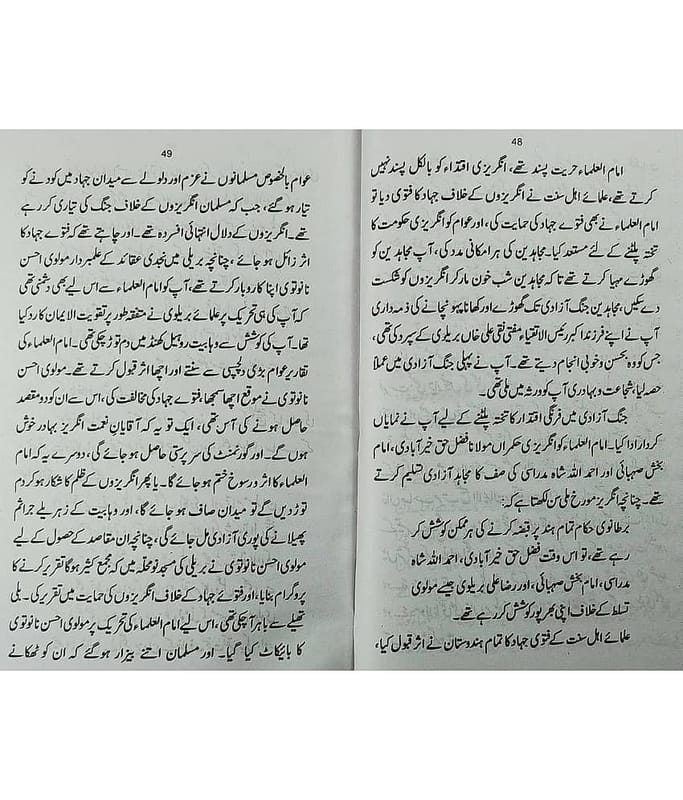 48
امام العلماء حریت پسند تھے، انگریزی اقتداء کو بالکل پسند نہیں
کرتے تھے، علمائے اہل سنت نے انگریزوں کے خلاف جہاد کا فتوی دیا تو
امام العلماء نے بھی فتوے جہاد کی حمایت کی، اور عوام کو انگریزی حکومت کا
تختہ پلٹنے کے لئے مستعد کیا۔ مجاہدین کی ہر امکانی مدد کی، آپ مجاہدین کو
گھوڑے مہیا کرتے تھے تاکہ مجاہدین شب خون مار کر انگریزوں کو شکست
دے سکیں، مجاہدین جنگ آزادی تک گھوڑے اور کھانا پہونچانے کی ذمہ داری
آپ نے اپنے فرزند اکبر رئیس الاتقیاء مفتی نقی علی خاں بریلوی کے سپرد کی تھی،
جس کو وہ بحسن و خوبی انجام دیتے تھے۔ آپ نے پہلی جنگ آزادی میں عملاً
حصہ لیا، شجاعت و بہادری آپ کو ورثہ میں ملی تھی۔
جنگ آزادی میں فرنگی اقتدار کا تختہ پلٹنے کے لیے آپ نے نمایاں
کردار ادا کیا۔ امام العلماء کو انگریزی حکمراں مولانا فضل حق خیرآبادی، امام
بخش صہبائی اور احمد اللہ شاہ مدراسی کی صف کا مجاہد آزادی تسلیم کرتے
تھے۔ چنانچہ انگریز مورخ ملی سن لکھتا ہے کہ:
برطانوی حکام تمام ہند پر قبضہ کرنے کی ہر ممکن کوشش کر
رہے تھے، تو اس وقت فضل حق خیرآبادی، احمد اللہ شاہ
مدراسی، امام بخش صہبائی، اور رضا علی بریلوی جیسے مولوی
تسلط کے خلاف اپنی بھر پور کوشش کر رہے تھے۔
علمائے اہل سنت کے فتوی جہاد کا تمام ہندوستان نے اثر قبول کیا،
49
عوام بالخصوص مسلمانوں نے عزم اور ولولے سے میدان جہاد میں کودنے کو
تیار ہو گئے، جب کہ مسلمان انگریزوں کے خلاف جنگ کی تیاری کر رہے
تھے۔ انگریزوں کے دلال انتہائی افسردہ تھے۔ اور چاہتے تھے کہ فتوے جہاد کا
اثر زائل ہو جائے، چنانچہ بریلی میں نجدی عقائد کے علمبردار مولوی احسن
نانوتوی اپنا کاروبار کرتے تھے، آپ کو امام العلماء سے اس لیے بھی دشمنی تھی
کہ آپ کی ہی تحریک پر علمائے بریلوی نے متفقہ طور پر تقویت الایمان کا رد کیا
تھا۔ آپ کی کوشش سے وہابیت روہیل کھنڈ میں دم توڑ چکی تھی۔ امام العلماء کی
تقاریر عوام بڑی دلچسپی سے سنتے اور اچھا اثر قبول کرتے تھے۔ مولوی احسن
نانوتوی نے موقع اچھا سمجھا، فتوے جہاد کی مخالفت کی، اس سے ان کو دو مقصد
حاصل ہونے کی آس تھی، ایک تو یہ کہ آقایان نعمت انگریز بہادر خوش
ہوں گے۔ اور گورنمنٹ کی سرپرستی حاصل ہو جائے گی، دوسرے یہ کہ امام
العلماء کا اثر و رسوخ ختم ہو جائے گا۔ یا پھر انگریزوں کے ظلم کا شکار ہو کر دم
توڑ دیں گے تو میدان صاف ہو جائے گا، اور وہابیت کے زہریلے جراثیم
پھیلانے کی پوری آزادی مل جائے گی، چنانچہ ان مقاصد کے حصول کے لیے
مولوی احسن نانوتوی نے بریلی کی مسجد نو محلہ میں کہ مجمع کثیر ہو گا تقریر کرنے کا
پروگرام بنایا، اور فتوائے جہاد کے خلاف انگریزوں کی حمایت میں تقریر کی۔ بلی
تھیلے سے باہر آ چکی تھی، اس لیے امام العلماء کی تحریک پر مولوی احسن نانوتوی
کا بائیکاٹ کیا گیا۔ اور مسلمان اتنے بیزار ہو گئے کہ ان کو ٹھکانے